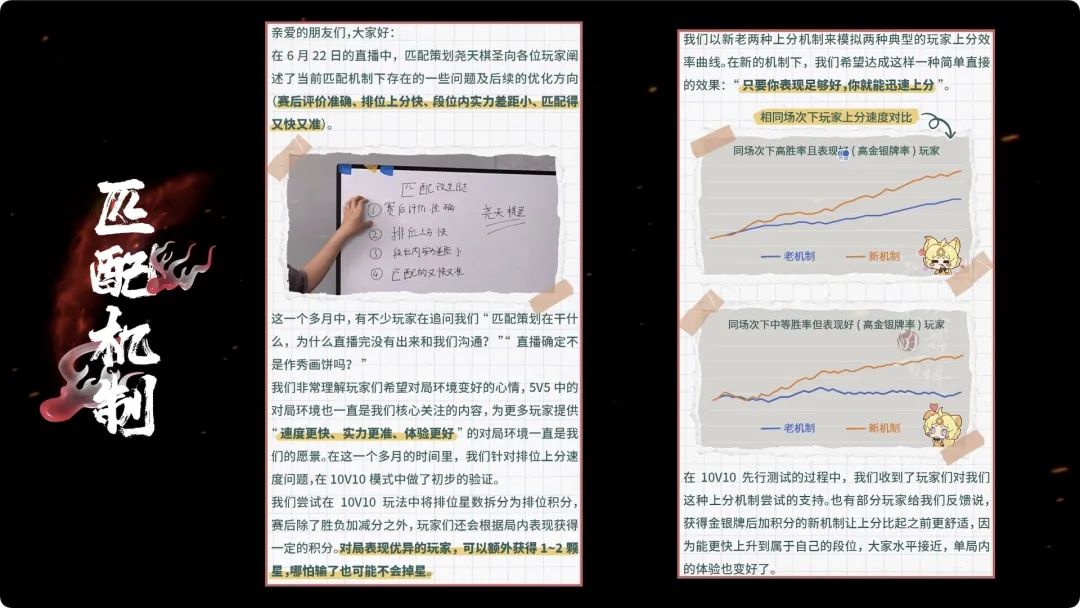 匹配机制
亲爱的朋友们，大家好：
在 6 月 22 日的直播中，匹配策划尧天棋圣向各位玩家阐
述了当前匹配机制下存在的一些问题及后续的优化方向
（赛后评价准确、排位上分快、段位内实力差距小、匹配得
又快又准）。
匹配改进
①赛后评价准确
②排位上分快
③段位内实力差距小
④匹配的又快又准
尧天棋圣
这一个多月中，有不少玩家在追问我们“匹配策划在干什
么，为什么直播完没有出来和我们沟通？”“直播确定不
是作秀画饼吗？”
我们非常理解玩家们希望对局环境变好的心情，5V5 中的
对局环境也一直是我们核心关注的内容，为更多玩家提供
“速度更快、实力更准、体验更好”的对局环境一直是我
们的愿景。在这一个多月的时间里，我们针对排位上分速
度问题，在 10V10 模式中做了初步的验证。
我们尝试在 10V10 玩法中将排位星数拆分为排位积分，
赛后除了胜负加减分之外，玩家们还会根据局内表现获得
一定的积分。对局表现优异的玩家，可以额外获得 1~2 颗
星，哪怕输了也可能不会掉星。
我们以新老两种上分机制来模拟两种典型的玩家上分效
率曲线。在新的机制下，我们希望达成这样一种简单直接
的效果：“只要你表现足够好，你就能迅速上分”。
相同场次下玩家上分速度对比
同场次下高胜率且表现好（高金银牌率）玩家
老机制 新机制
同场次下中等胜率但表现好（高金银牌率）玩家
老机制 新机制
在 10V10 先行测试的过程中，我们收到了玩家们对我们
这种上分机制尝试的支持。也有部分玩家给我们反馈说，
获得金银牌后加积分的新机制让上分比起之前更舒适，因
为能更快上升到属于自己的段位，大家水平接近，单局内
的体验也变好了。